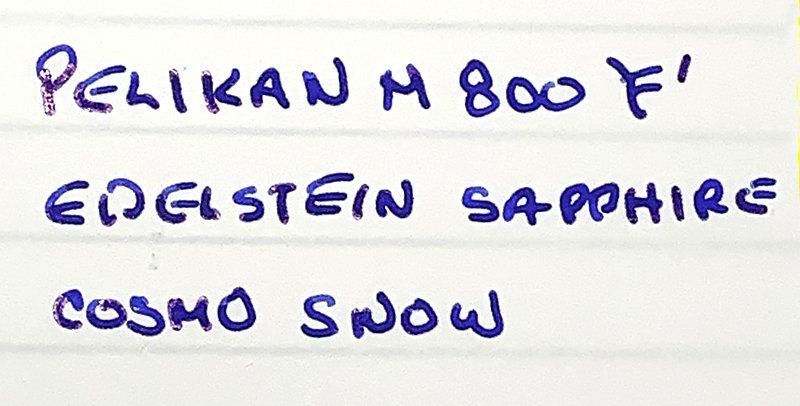 PELIKAN M 800 F'
EDELSTEIN SAPPHIRE
COSMO SNOW